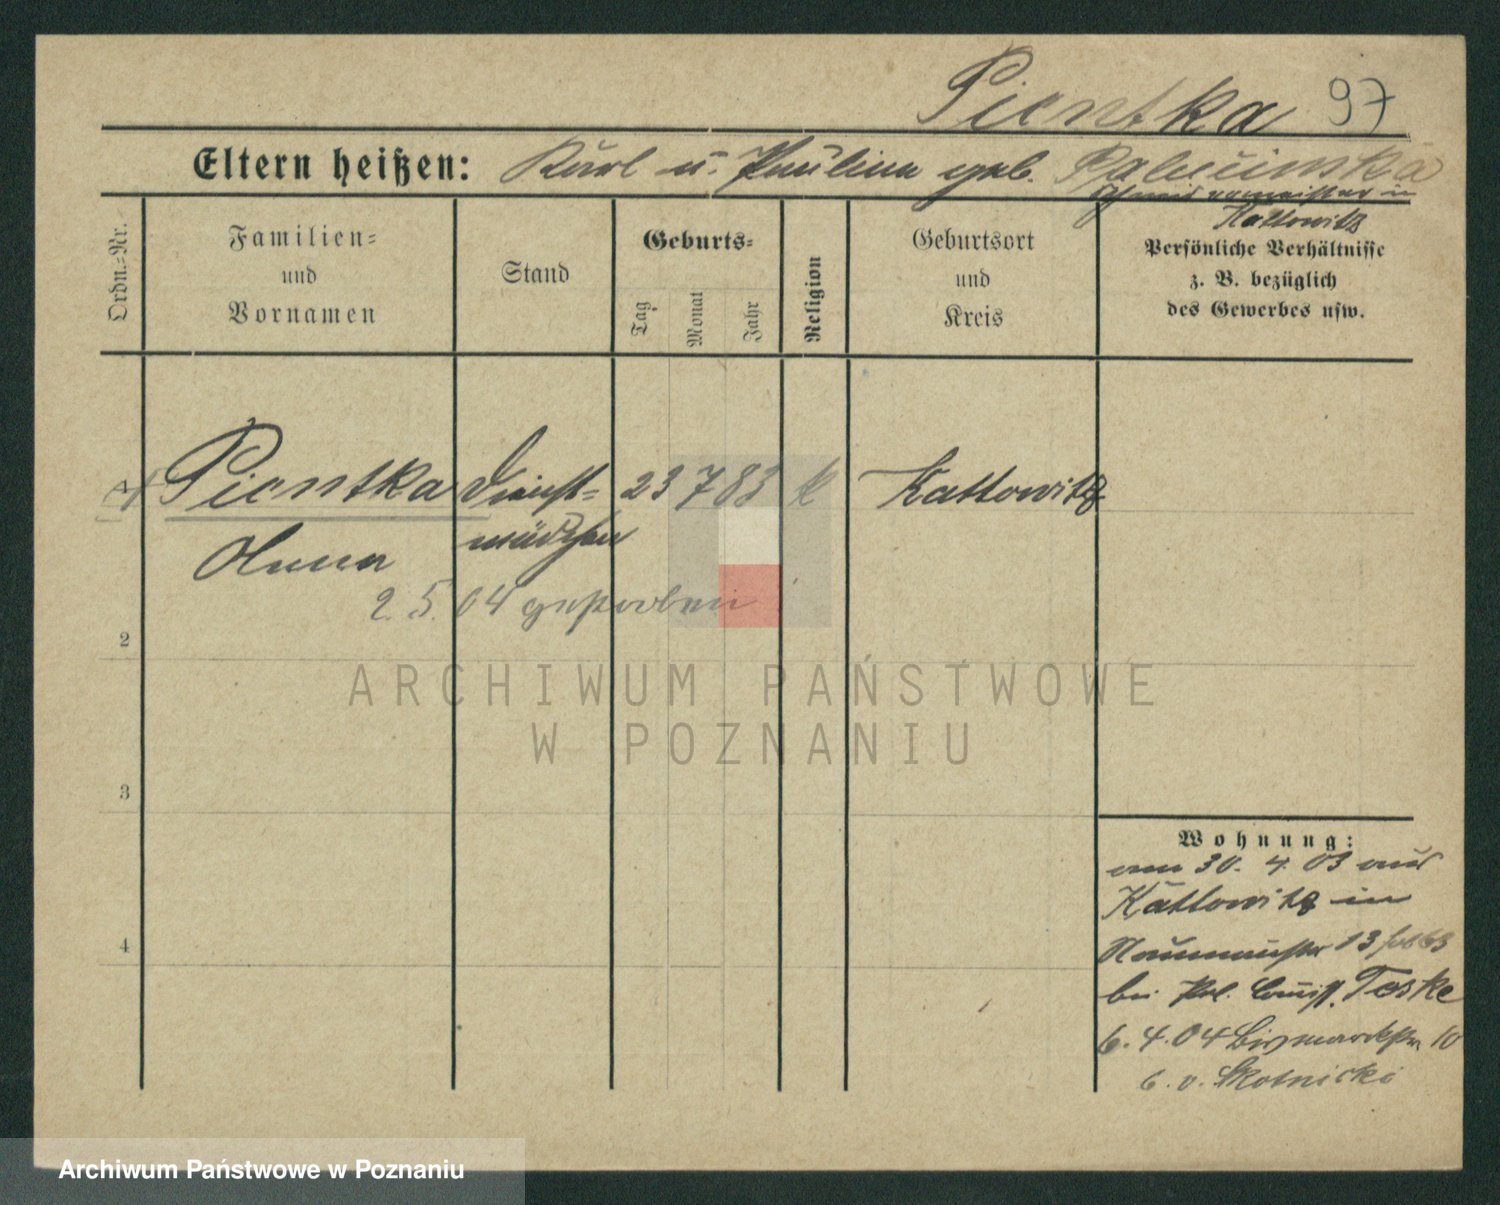 Pientka 97
Eltern heißen: Karl u. Paulina geb.
Schneidermeister in
Kattowitz
Ordn.=Nr.
Familien=
und
Vornamen
Stand
Geburts=
Tag
Monat
Jahr
Religion
Geburtsort
und
Kreis
Persönliche Verhältnisse
z. B. bezüglich
des Gewerbes usw.
1 Pientka Dienst= 23 7 83 k Kattowitz
Anna mädchen
2. 5. 04 gestorben
2
3
4
Wohnung:
am 30. 4. 03 aus
Kattowitz in
Naumannstr 13
bei Pol. Comiss. Teske
6. 4. 04 Bismarckstr 10
b. v. Skotnicki
ARCHIWUM PAŃSTWOWE
W POZNANIU
Archiwum Państwowe w Poznaniu